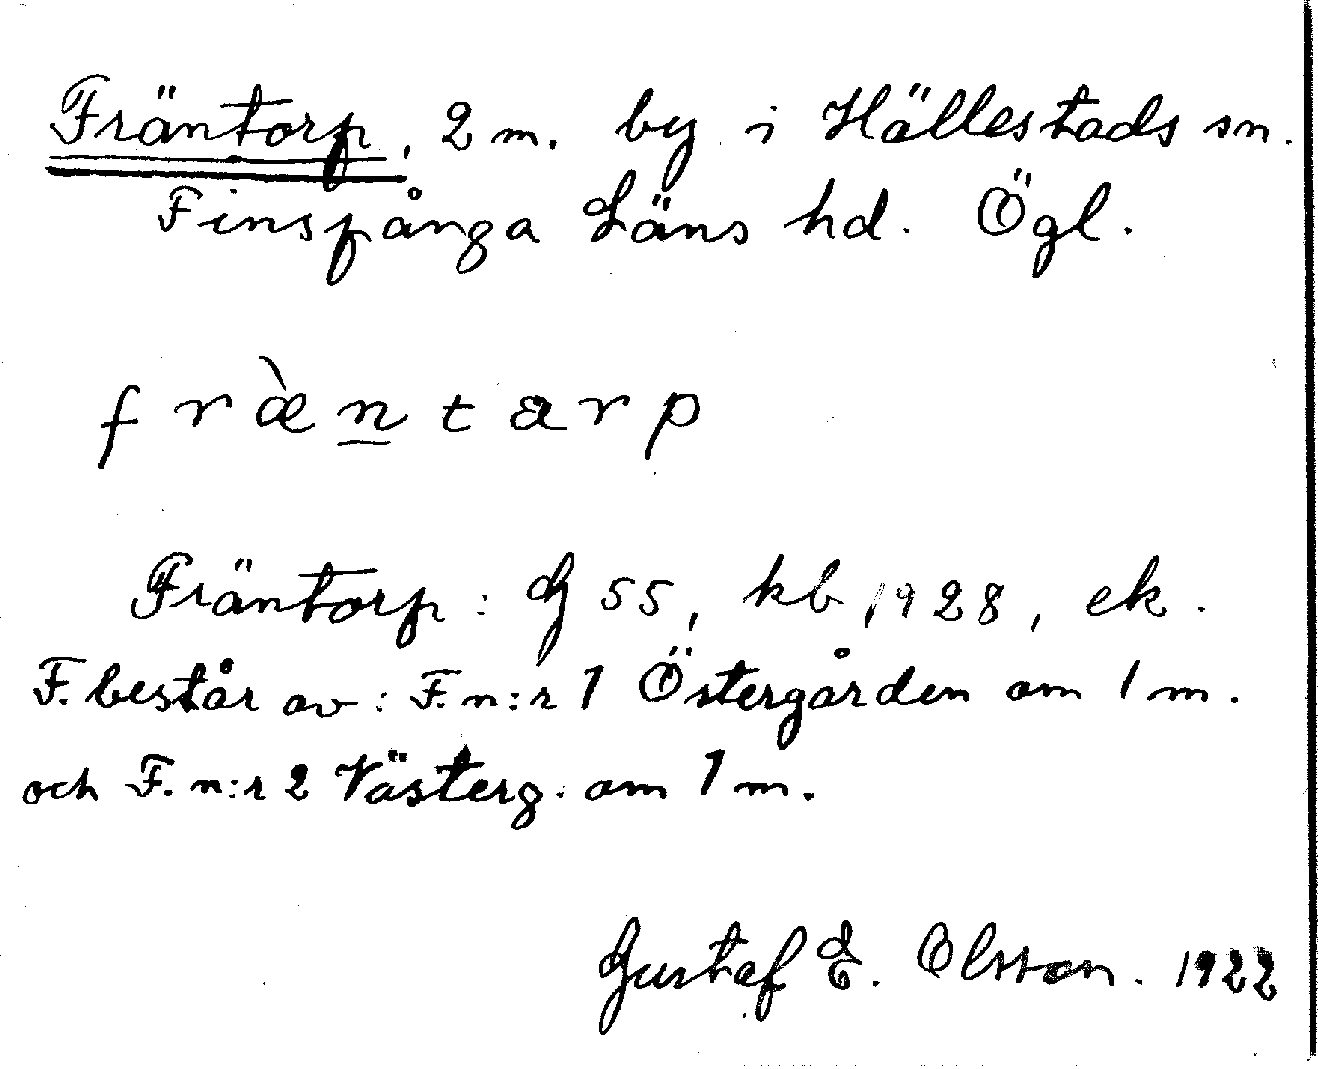 Fräntorp, 2 m. by i Hällestads sn.
Finspånga Läns hd. Ögl.
fræ̀n̲tarp
Fräntorp: G 55, kb 1928, ek.
F. består av: F. n:r 1 Östergården om 1 m.
och F. n:r 2 Västerg. om 1 m.
Gustaf E. Olsson. 1922